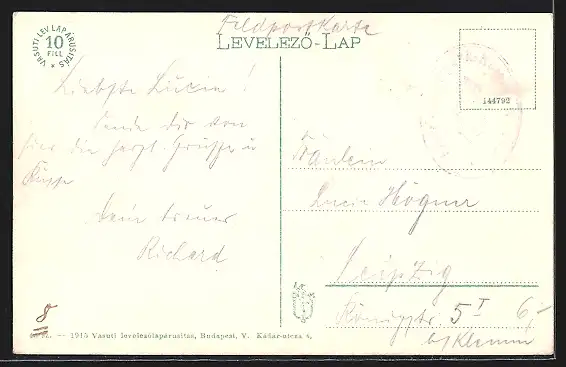 VASUTI LEVLAPÁRUSITÁS
10
FILL
Feldpostkarte
LEVELEZŐ-LAP
144792
Liebste Lucie!
Sende dir von
hier die herzl. Grüsse u
Küsse
Dein treuer
Richard
Fräulein
Lucie Högner
Leipzig
Königstr. 5 I
b/ Klemm
6,-
8
— 1915 Vasuti levelezőlapárusitás, Budapest, V. Kádár-utcza 4.